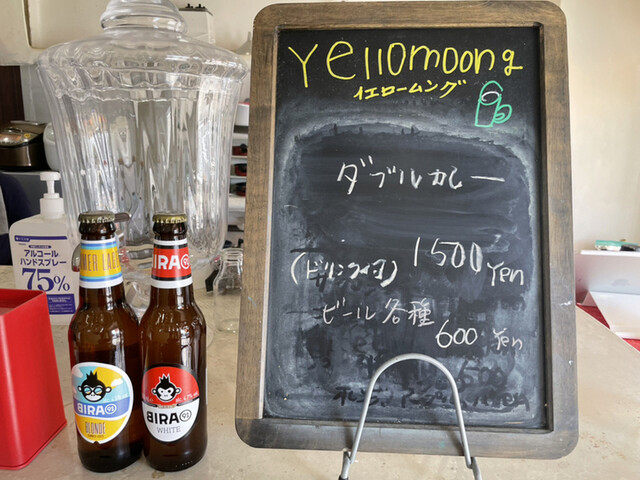 Yellomoong
イエロームング
ダブルカレー
(ドリンク付) 1500 Yen
ビール各種 600 Yen
アルコール
ハンドスプレー
75%
MER LAG
BIRA 91
BLONDE
BIRA 91
BIRA 91
WHITE